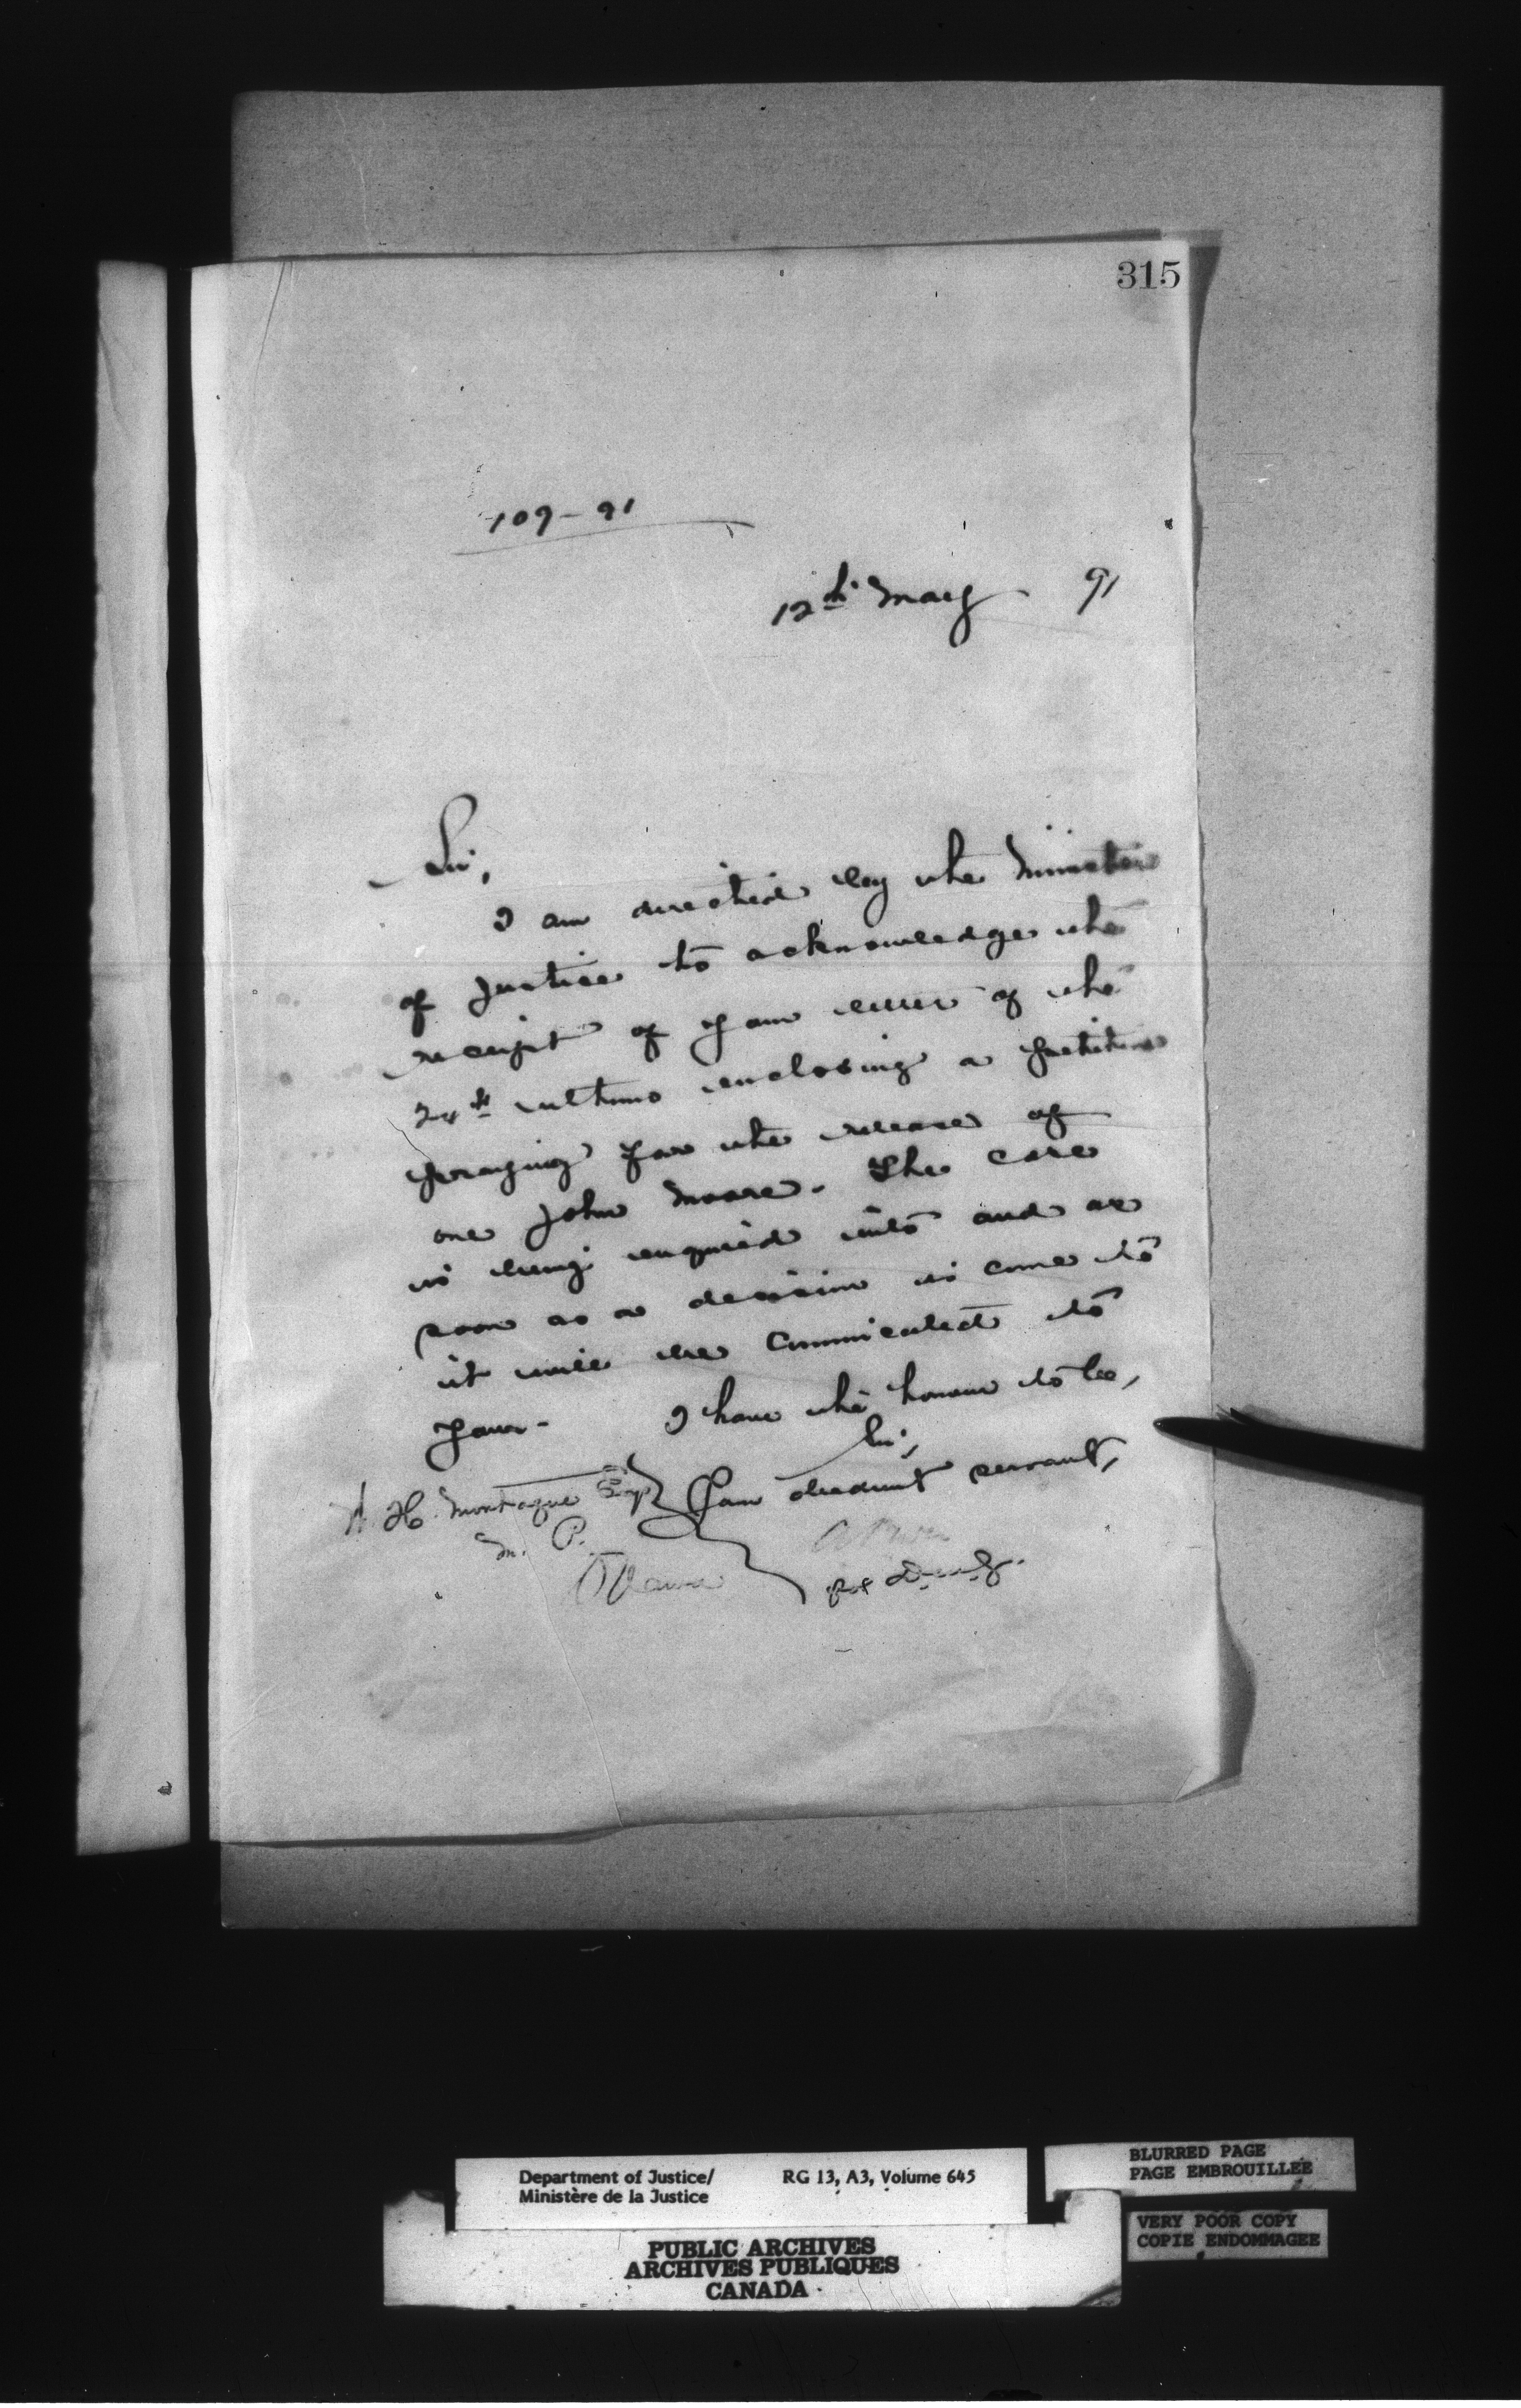 315
109-91
12th May 91
Sir,
I am directed by the Minister
of Justice to acknowledge the
receipt of your letter of the
24th ultimo enclosing a petition
praying for the release of
one John Moore. The case
is being enquired into and as
soon as a decision is come to
it will be communicated to
you.
I have the honour to be,
Sir,
Your obedient servant,
A. H. Montague Esq
M. P.
Ottawa
A Power
for D.M.J.
Department of Justice/
Ministère de la Justice
RG 13, A3, Volume 645
BLURRED PAGE
PAGE EMBROUILLÉE
VERY POOR COPY
COPIE ENDOMMAGEE
PUBLIC ARCHIVES
ARCHIVES PUBLIQUES
CANADA